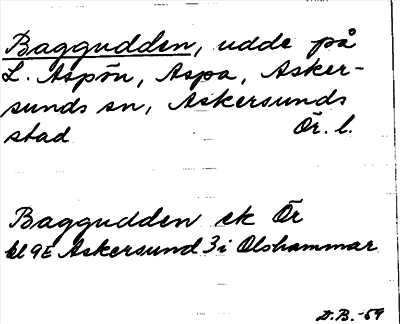 Baggudden, udde på
L. Aspön, Aspa, Asker-
sunds sn, Askersunds
stad Ör. l.
Baggudden ek Ör
bl 9E Askersund 3 i Olshammar
D.B.-59